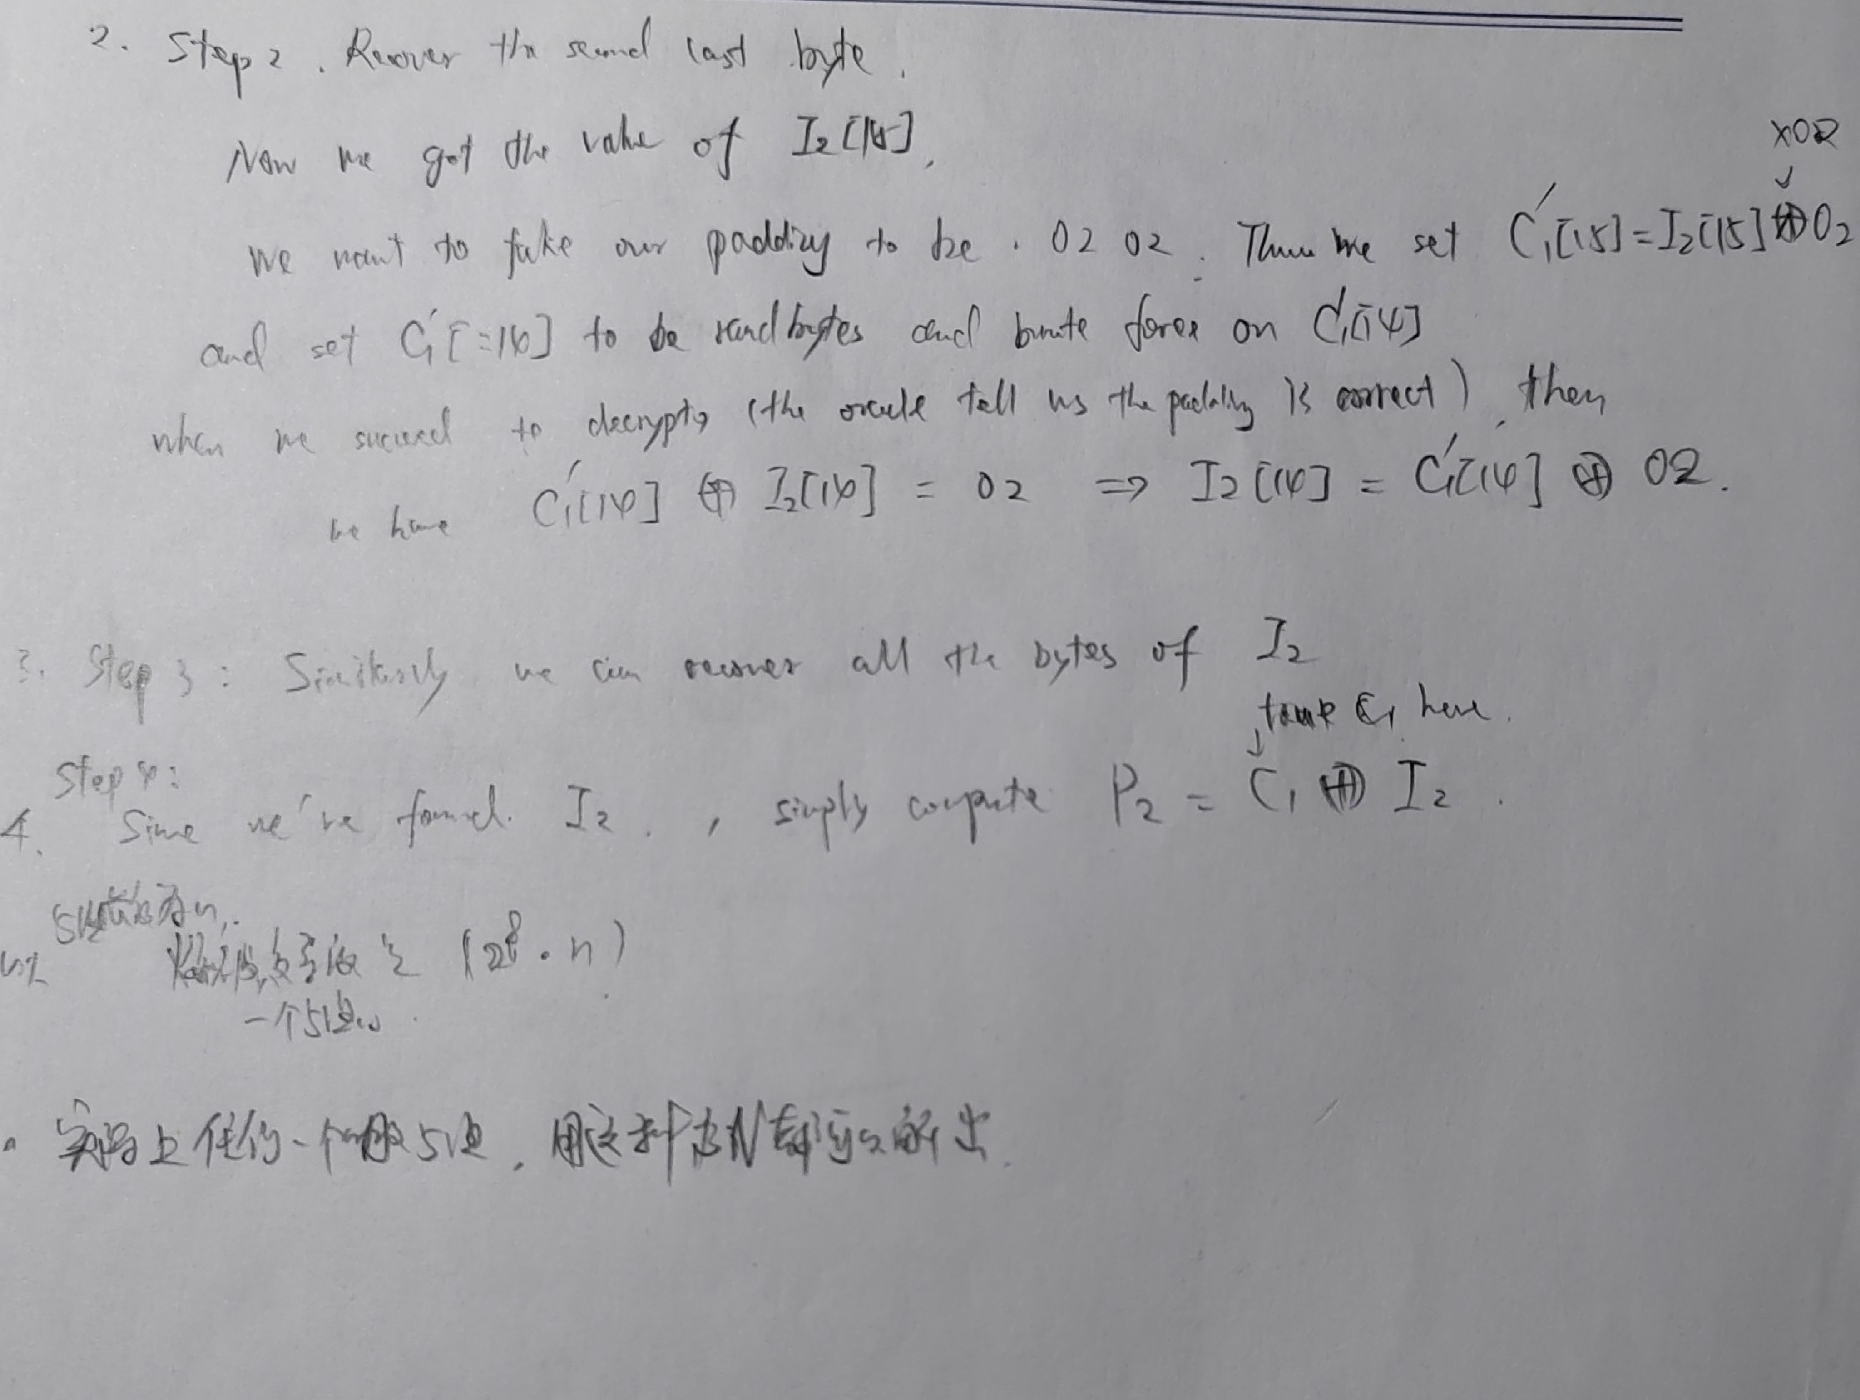 2. Step 2. Recover the second last byte.
Now we got the value of I₂[15],
XOR
We want to fake our padding to be. 02 02. Then we set C₁'[15] = I₂[15] ⊕ 02
and set C₁'[:14] to be rand bytes and brute force on C₁'[14]
when we succeed to decrypt, (the oracle tell us the padding is correct), then
we have C₁'[14] ⊕ I₂[14] = 02 ⇒ I₂[14] = C₁'[14] ⊕ 02.
3. Step 3: Similarly we can recover all the bytes of I₂
C₁ here.
Step 4:
4. Since we've found I₂., simply compute P₂ = C₁ ⊕ I₂.
为n,
(2⁸·n)
一个
实际上任何一个,用这种都可以解出.